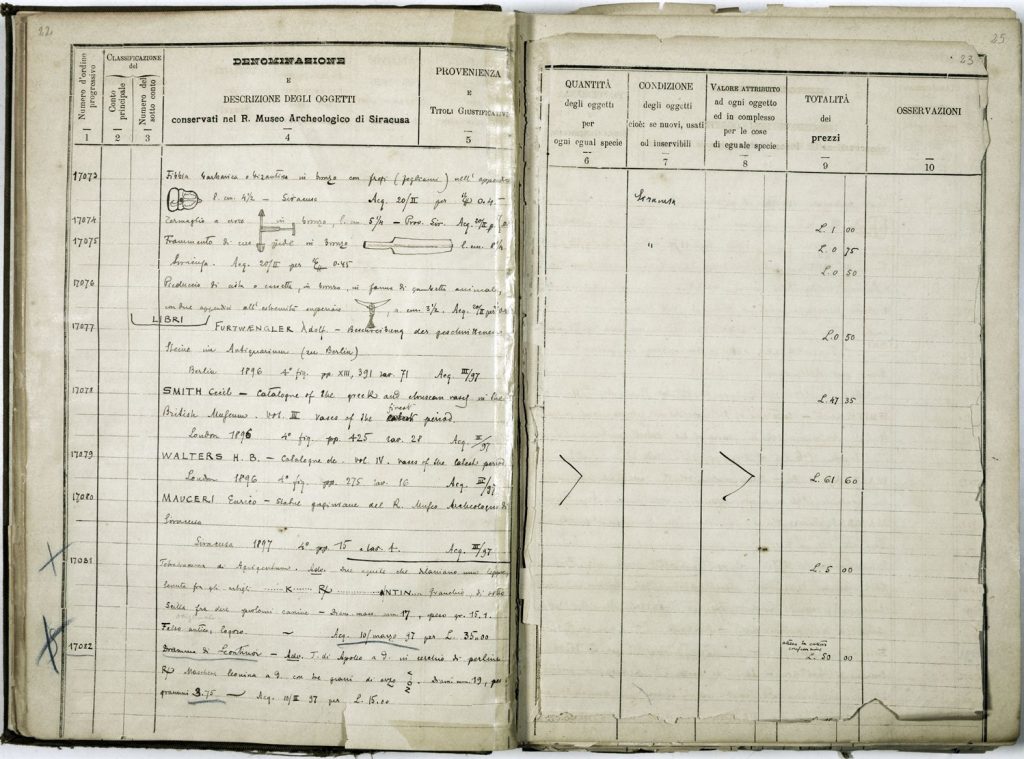 22
Numero d'ordine progressivo
Classificazione del
Conto principale
Numero del sotto conto
DENOMINAZIONE
E
DESCRIZIONE DEGLI OGGETTI
conservati nel R. Museo Archeologico di Siracusa
PROVENIENZA
E
Titoli Giustificativi
1 2 3 4 5
17073 Fibbia barbarica o bizantina in bronzo con fregi (fogliami) nell'
l. cm. 4½ – Siracusa Acq. 20/II per 0.45
17074 in bronzo, l. cm 5½ – Prov. Sir. Acq. 20/II p.
17075 Frammento di in bronzo l. cm. 8½
Siracusa. Acq. 20/II per 0.45
17076 Pieduccio di cista o cassetta, in bronzo, in forma di gambetta animale,
con due appendici all'estremità superiore, a. cm. 3½. Acq. 20/II per
LIBRI
17077 FURTWÆNGLER Adolf – Beschreibung der geschnittenen
Steine im Antiquarium (zu Berlin)
Berlin 1896 4° fig. pp. XIII, 391 tav. 71 Acq. III/97
17078 SMITH Cecil – Catalogue of the greek and etruscan vases in the
British Museum. vol. III vases of the finest period.
London 1896 4° fig. pp. 425 tav. 28 Acq. III/97
17079 WALTERS H. B. – Catalogue etc. vol. IV. vases of the latest period
London 1896 4° fig. pp. 275 tav. 16 Acq. III/97
17080 MAUCERI Enrico – Statue del R. Museo Archeologico di
Siracusa
Siracusa 1897 4° pp. 15 e tav. 4. Acq. III/97
17081 Tetradramma di Agrigentum. Adv. Due aquile che dilaniano una lepre
K R) ANTIN granchio, di sotto
Scilla fra due protomi canine – Diam. mass. mm 17, peso gr. 15.9.
Falso antico, logoro. – Acq. 10/marzo 97 per L. 35.00
17082 Dramma di Leontinoi – Adv. T. di Apollo a d. in cerchio di perline
R) Maschera leonina a d. con tre grani di orzo NOV. Diam. mm. 19, peso
grammi 3.75 – Acq. 10/III 97 per L. 15.00
25
23
QUANTITÀ
degli oggetti
per
ogni egual specie
6
CONDIZIONE
degli oggetti
cioè: se nuovi, usati
od inservibili
7
Valore attribuito
ad ogni oggetto
ed in complesso
per le cose
di eguale specie
8
TOTALITÀ
dei
prezzi
9
OSSERVAZIONI
10
Siracusa
L. 1 00
" L. 0 75
L. 0 50
L. 0 50
L. 47 35
L. 61 60
L. 5 00
L. 50 00